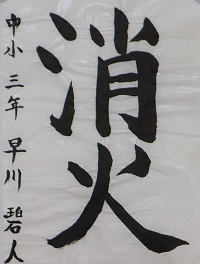 消火
中小三年早川碧人